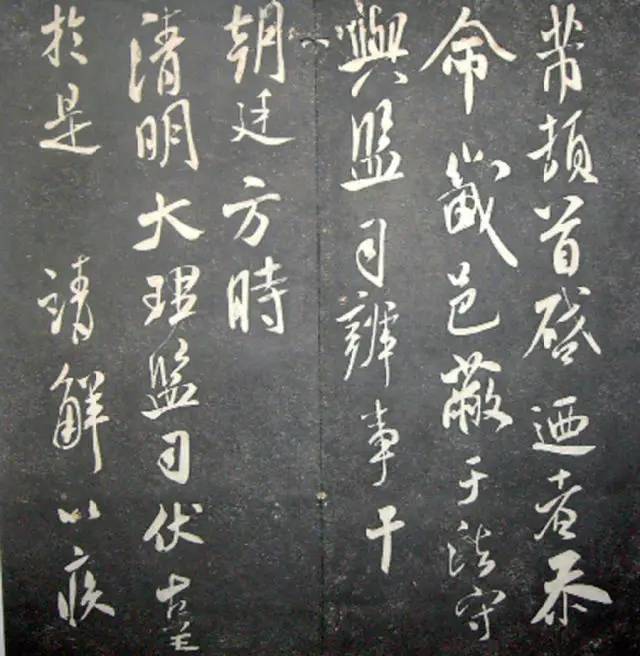 芾頓首啓迺者忝
命畿邑蔽于法守
與監司辨事干
朝廷方時
清明大理監司伏
於是 請解以疾